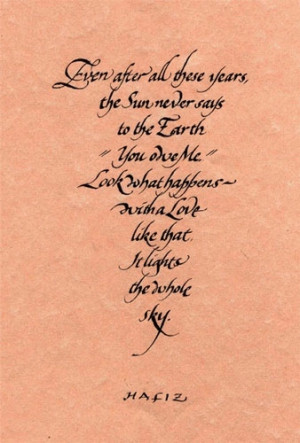 Even after all these years,
the Sun never says
to the Earth
"You owe Me."
Look what happens~
with a Love
like that.
It lights
the whole
sky.
HAFIZ